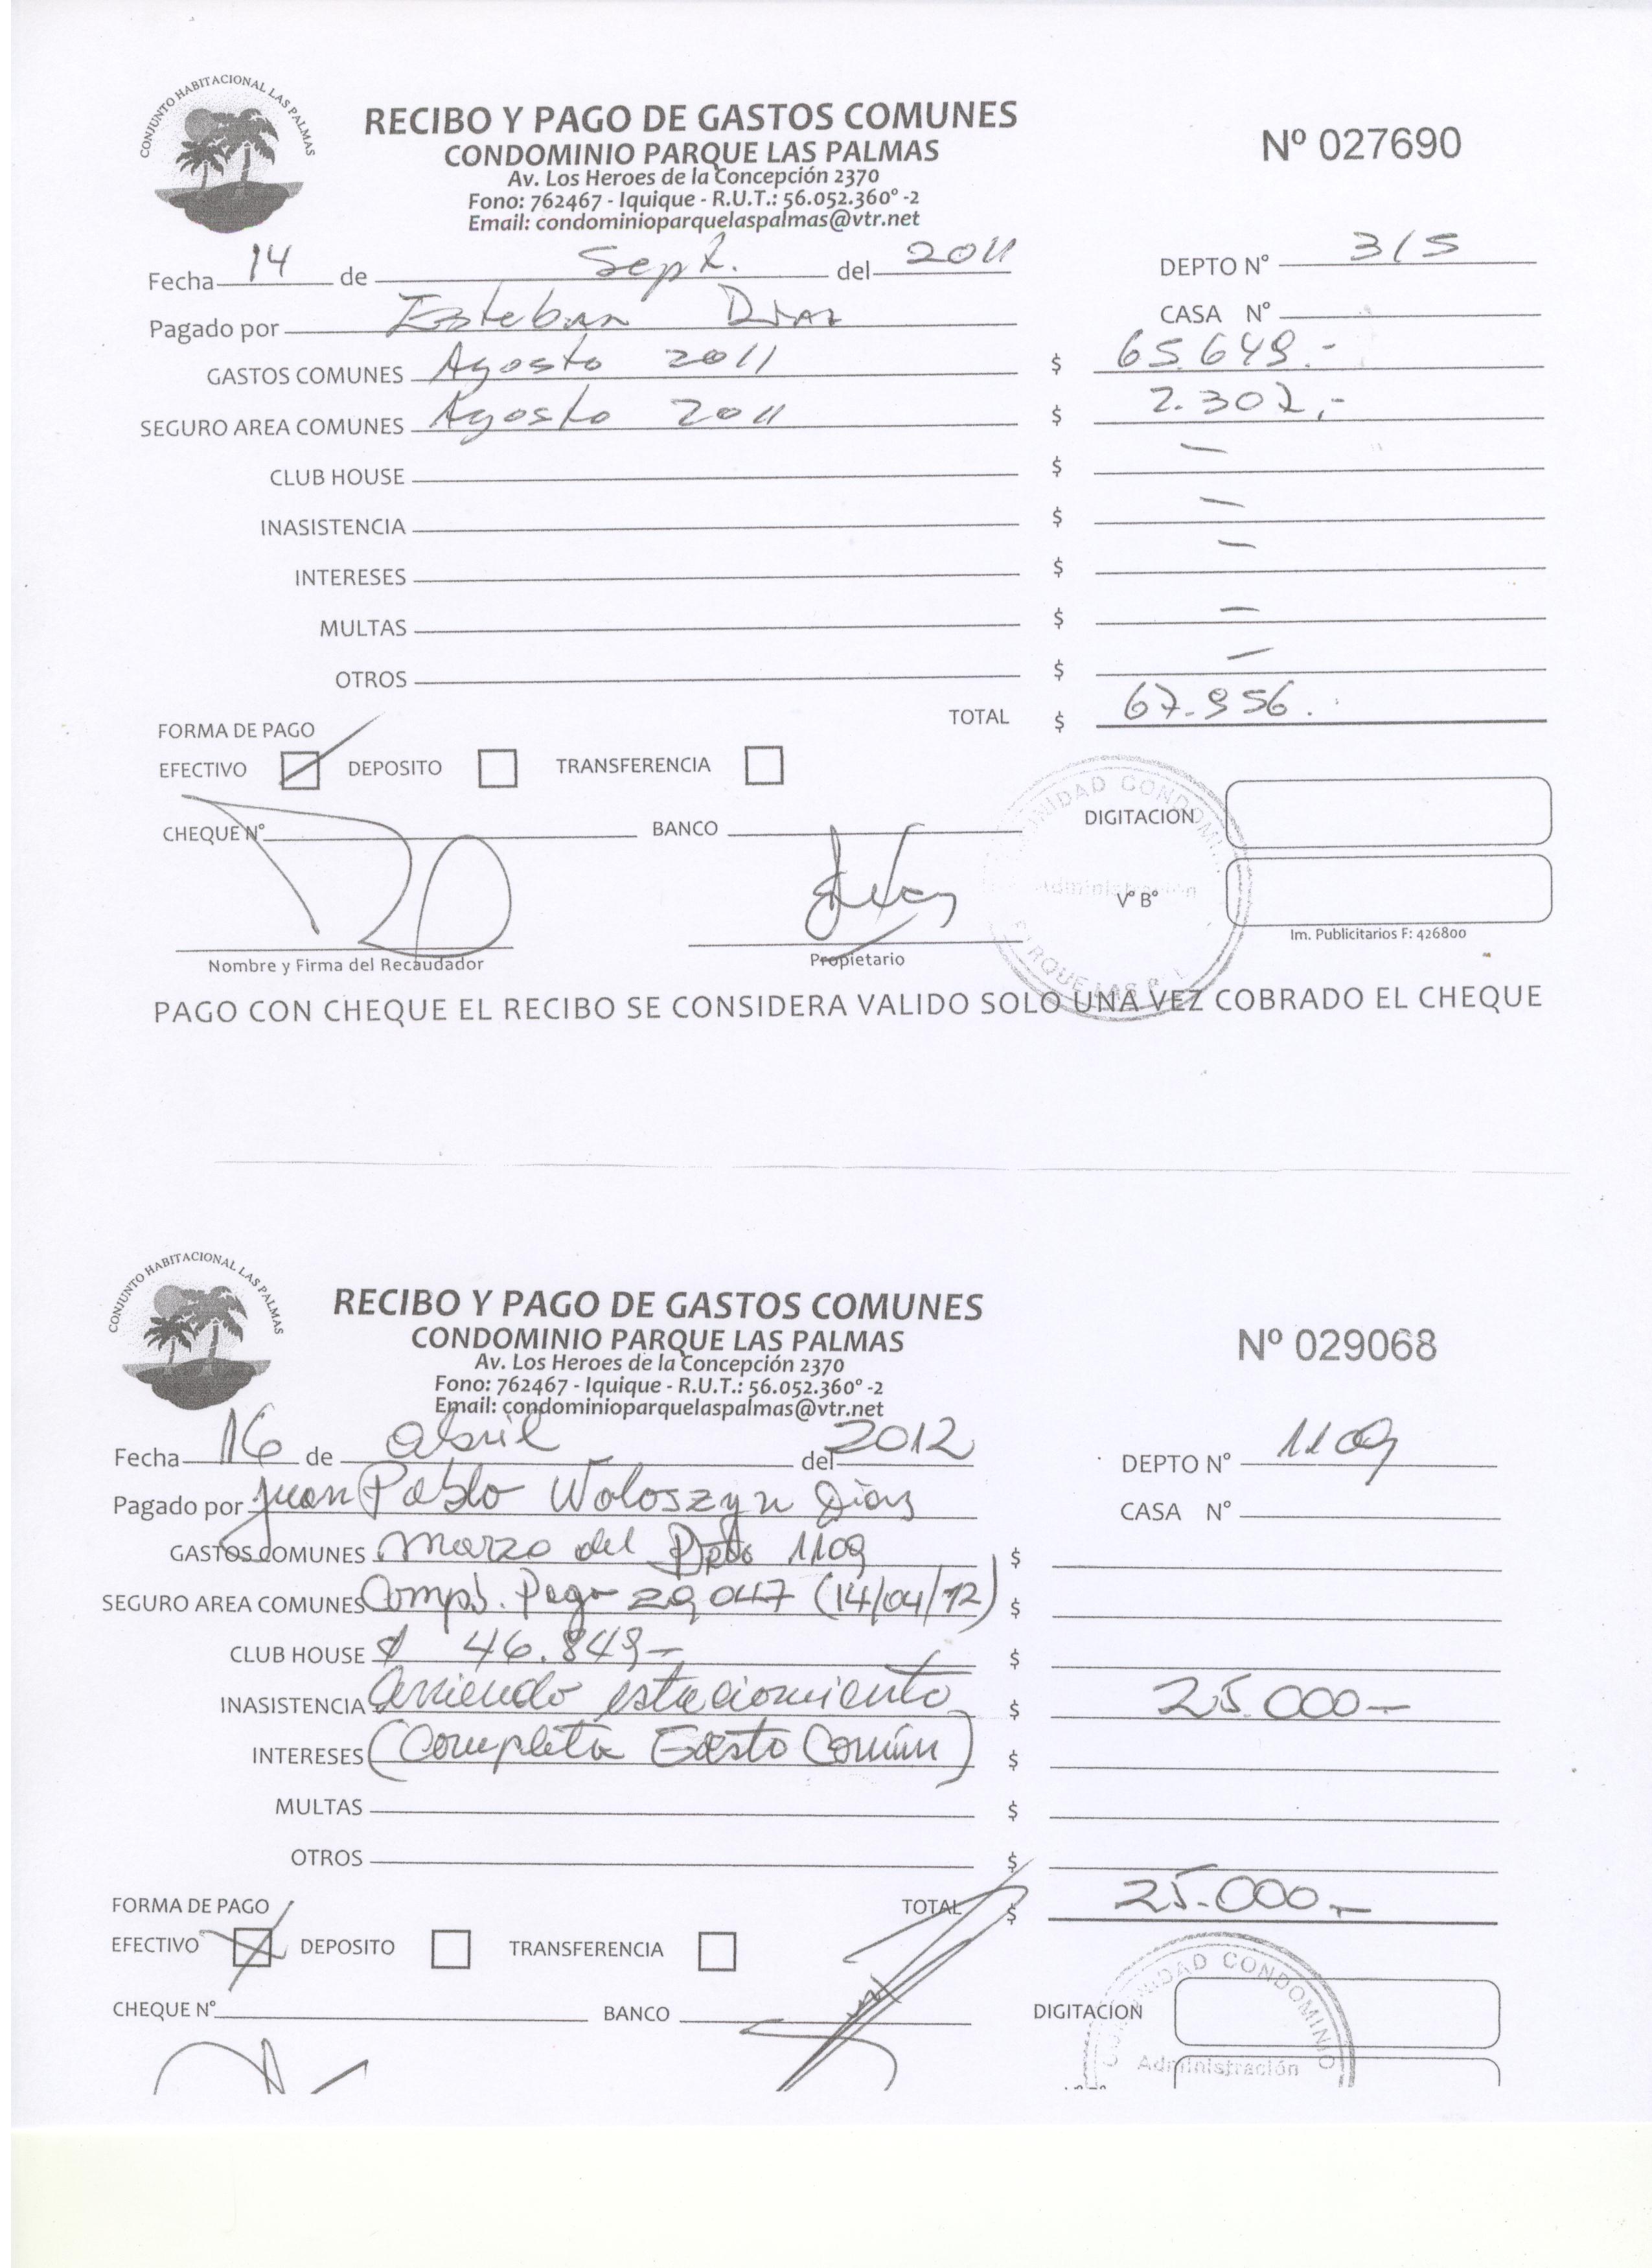 CONJUNTO HABITACIONAL LAS PALMAS
RECIBO Y PAGO DE GASTOS COMUNES
CONDOMINIO PARQUE LAS PALMAS
Av. Los Heroes de la Concepción 2370
Fono: 762467 - Iquique - R.U.T.: 56.052.360° -2
Email: condominioparquelaspalmas@vtr.net
Nº 027690
Fecha 14 de Sept. del 2011 DEPTO N° 315
Pagado por Esteban Diaz CASA N°
GASTOS COMUNES Agosto 2011 $ 65.649.-
SEGURO AREA COMUNES Agosto 2011 $ 2.307.-
CLUB HOUSE $ —
INASISTENCIA $ —
INTERESES $ —
MULTAS $ —
OTROS $ —
FORMA DE PAGO TOTAL $ 67.956.
EFECTIVO DEPOSITO TRANSFERENCIA
CHEQUE N° BANCO DIGITACION
V° B°
Administración
Im. Publicitarios F: 426800
Nombre y Firma del Recaudador Propietario
PAGO CON CHEQUE EL RECIBO SE CONSIDERA VALIDO SOLO UNA VEZ COBRADO EL CHEQUE
CONJUNTO HABITACIONAL LAS PALMAS
RECIBO Y PAGO DE GASTOS COMUNES
CONDOMINIO PARQUE LAS PALMAS
Av. Los Heroes de la Concepción 2370
Fono: 762467 - Iquique - R.U.T.: 56.052.360° -2
Email: condominioparquelaspalmas@vtr.net
Nº 029068
Fecha 16 de abril del 2012 DEPTO N° 1109
Pagado por Juan Pablo Woloszyn Diaz CASA N°
GASTOS COMUNES Marzo del Dpto 1109 $
SEGURO AREA COMUNES Comp. Pago 29.047 (14/04/12) $
CLUB HOUSE $ 46.849- $
INASISTENCIA Arriendo estaciomiento $ 25.000-
INTERESES (Completa Gasto Común) $
MULTAS $
OTROS $
FORMA DE PAGO TOTAL $ 25.000.-
EFECTIVO DEPOSITO TRANSFERENCIA
CHEQUE N° BANCO DIGITACION
CONDOMINIO
Administración